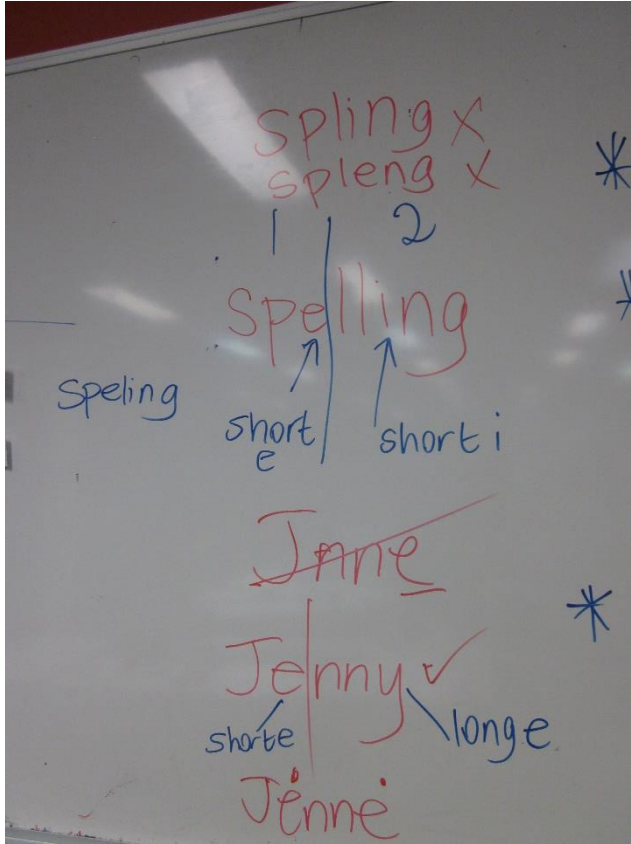 spling x
spleng x
1 2
Spelling
speling
short e
short i
Jnne
Jenny ✓
short e
long e
Jenne